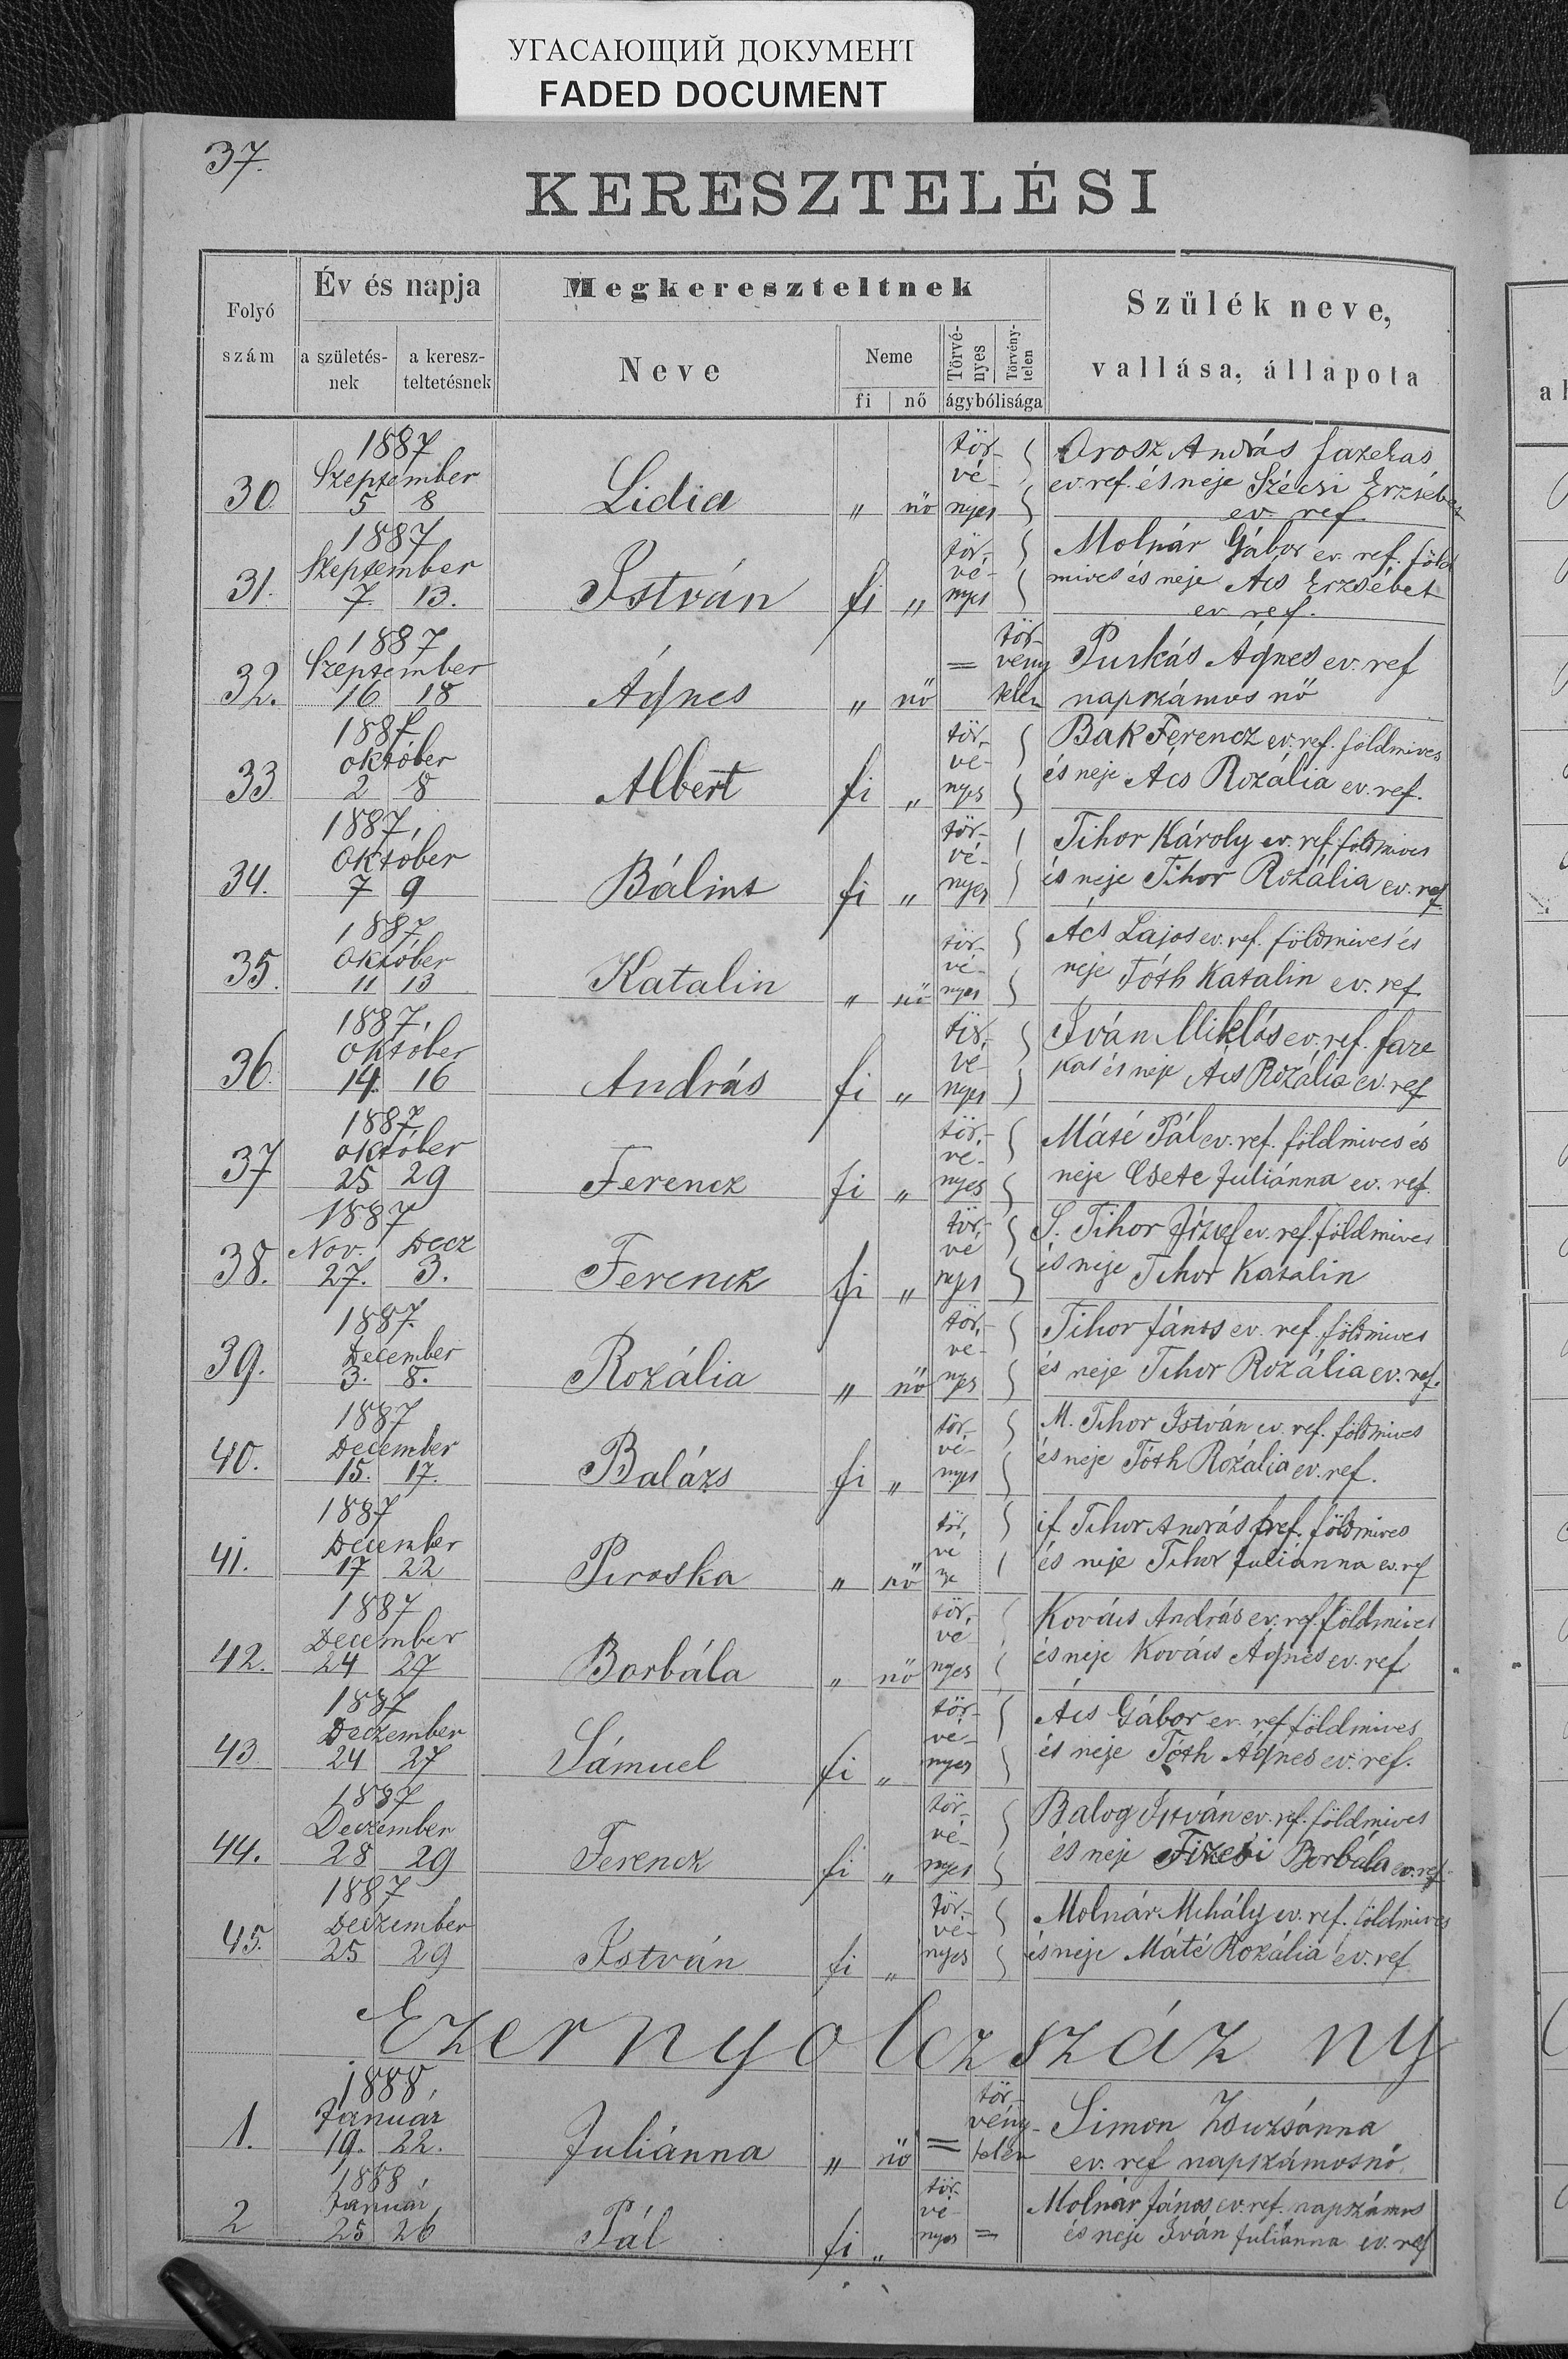 УГАСАЮЩИЙ ДОКУМЕНТ
FADED DOCUMENT
37.
KERESZTELÉSI
Folyó szám
Év és napja
a születés-nek
a keresz-teltetésnek
Megkereszteltnek
Neve
Neme
fi nő
Törvé-nyes
Törvény-telen
ágybólisága
Szülék neve,
vallása, állapota
1887
Szeptember
30 5 8 Lidia " nő tör-vé-nyes
Orosz András fazekas
ev. ref. és neje Szécsi Erzsébet
ev. ref.
1887
Szeptember
31. 7. 13. István fi " tör-vé-nyes
Molnár Gábor ev. ref. föld
mives és neje Ács Erzsébet
ev. ref.
1887
Szeptember
32. 16 18 Ágnes " nő = tör-vény telen
Puskás Ágnes ev. ref
napszámos nő
1887
október
33 2 8 Albert fi " tör-vé-nyes
Bak Ferencz ev. ref. földmives
és neje Ács Rozália ev. ref.
1887,
Október
34. 7 9 Bálint fi " tör-vé-nyes
Tihor Károly ev. ref. földmives
és neje Tihor Rozália ev. ref.
1887
Október
35. 11 13 Katalin " nő tör-vé-nyes
Ács Lajos ev. ref. földmives és
neje Tóth Katalin ev. ref.
1887,
Október
36. 14. 16 András fi " tör-vé-nyes
Iván Miklós ev. ref. faze
kas és neje Ács Rozália ev. ref
1887,
október
37 25 29 Ferencz fi " tör-vé-nyes
Máté Pál ev. ref. földmives és
neje Csete Juliánna ev. ref.
1887
Nov. Decz
38. 27. 3. Ferencz fi " tör-vé nyes
S. Tihor József ev. ref. földmives
és neje Tihor Katalin
1887.
December
39. 3. 8. Rozália " nő tör-vé-nyes
Tihor János ev. ref. földmives
és neje Tihor Rozália ev. ref.
1887
December
40. 15. 17. Balázs fi " tör-vé-nyes
M. Tihor István ev. ref. földmives
és neje Tóth Rozália ev. ref.
1887
December
41. 17 22 Piroska " nő tör, vé
if. Tihor András ref. földmives
és neje Tihor Juliánna ev. ref
1887
December
42. 24 27 Borbála " nő tör, vé nyes
Kovács András ev. ref. földmives
és neje Kovács Ágnes ev. ref
1887
Deczember
43 24 27 Sámuel fi " tör-vé-nyes
Ács Gábor ev. ref földmives
és neje Tóth Ágnes ev. ref.
1887
Deczember
44. 28 29 Ferencz fi " tör-vé-nyes
Balog István ev. ref. földmives
és neje Borbála ev. ref.
1887
Deczember
45. 25 29 István fi " tör-vé-nyes
Molnár Mihály ev. ref. földmives
és neje Máté Rozália ev. ref
Ezernyolczszáz ny
1888,
Január
1. 19. 22. Juliánna " nő = tör-vény-telen
Simon Zsuzsánna
ev. ref napszámosnő
1888,
Január
2 25 26 Pál fi " tör-vé-nyes =
Molnár János ev. ref. napszámos
és neje Iván Juliánna ev. ref